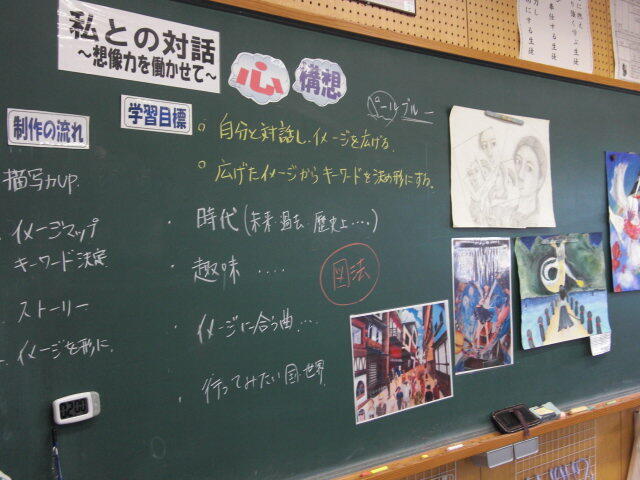 私との対話
～想像力を働かせて～
心
構想
ペールブルー
制作の流れ
学習目標
○ 自分と対話し、イメージを広げる。
○ 広げたイメージからキーワードを決め形にする。
描写力up.
・イメージマップ
キーワード決定
・ストーリー
・イメージを形に.
・時代(未来・過去 歴史上・・・・)
・趣味 ・・・・
図法
・イメージに合う曲・・・・
・行ってみたい国・世界.
奉仕する生徒